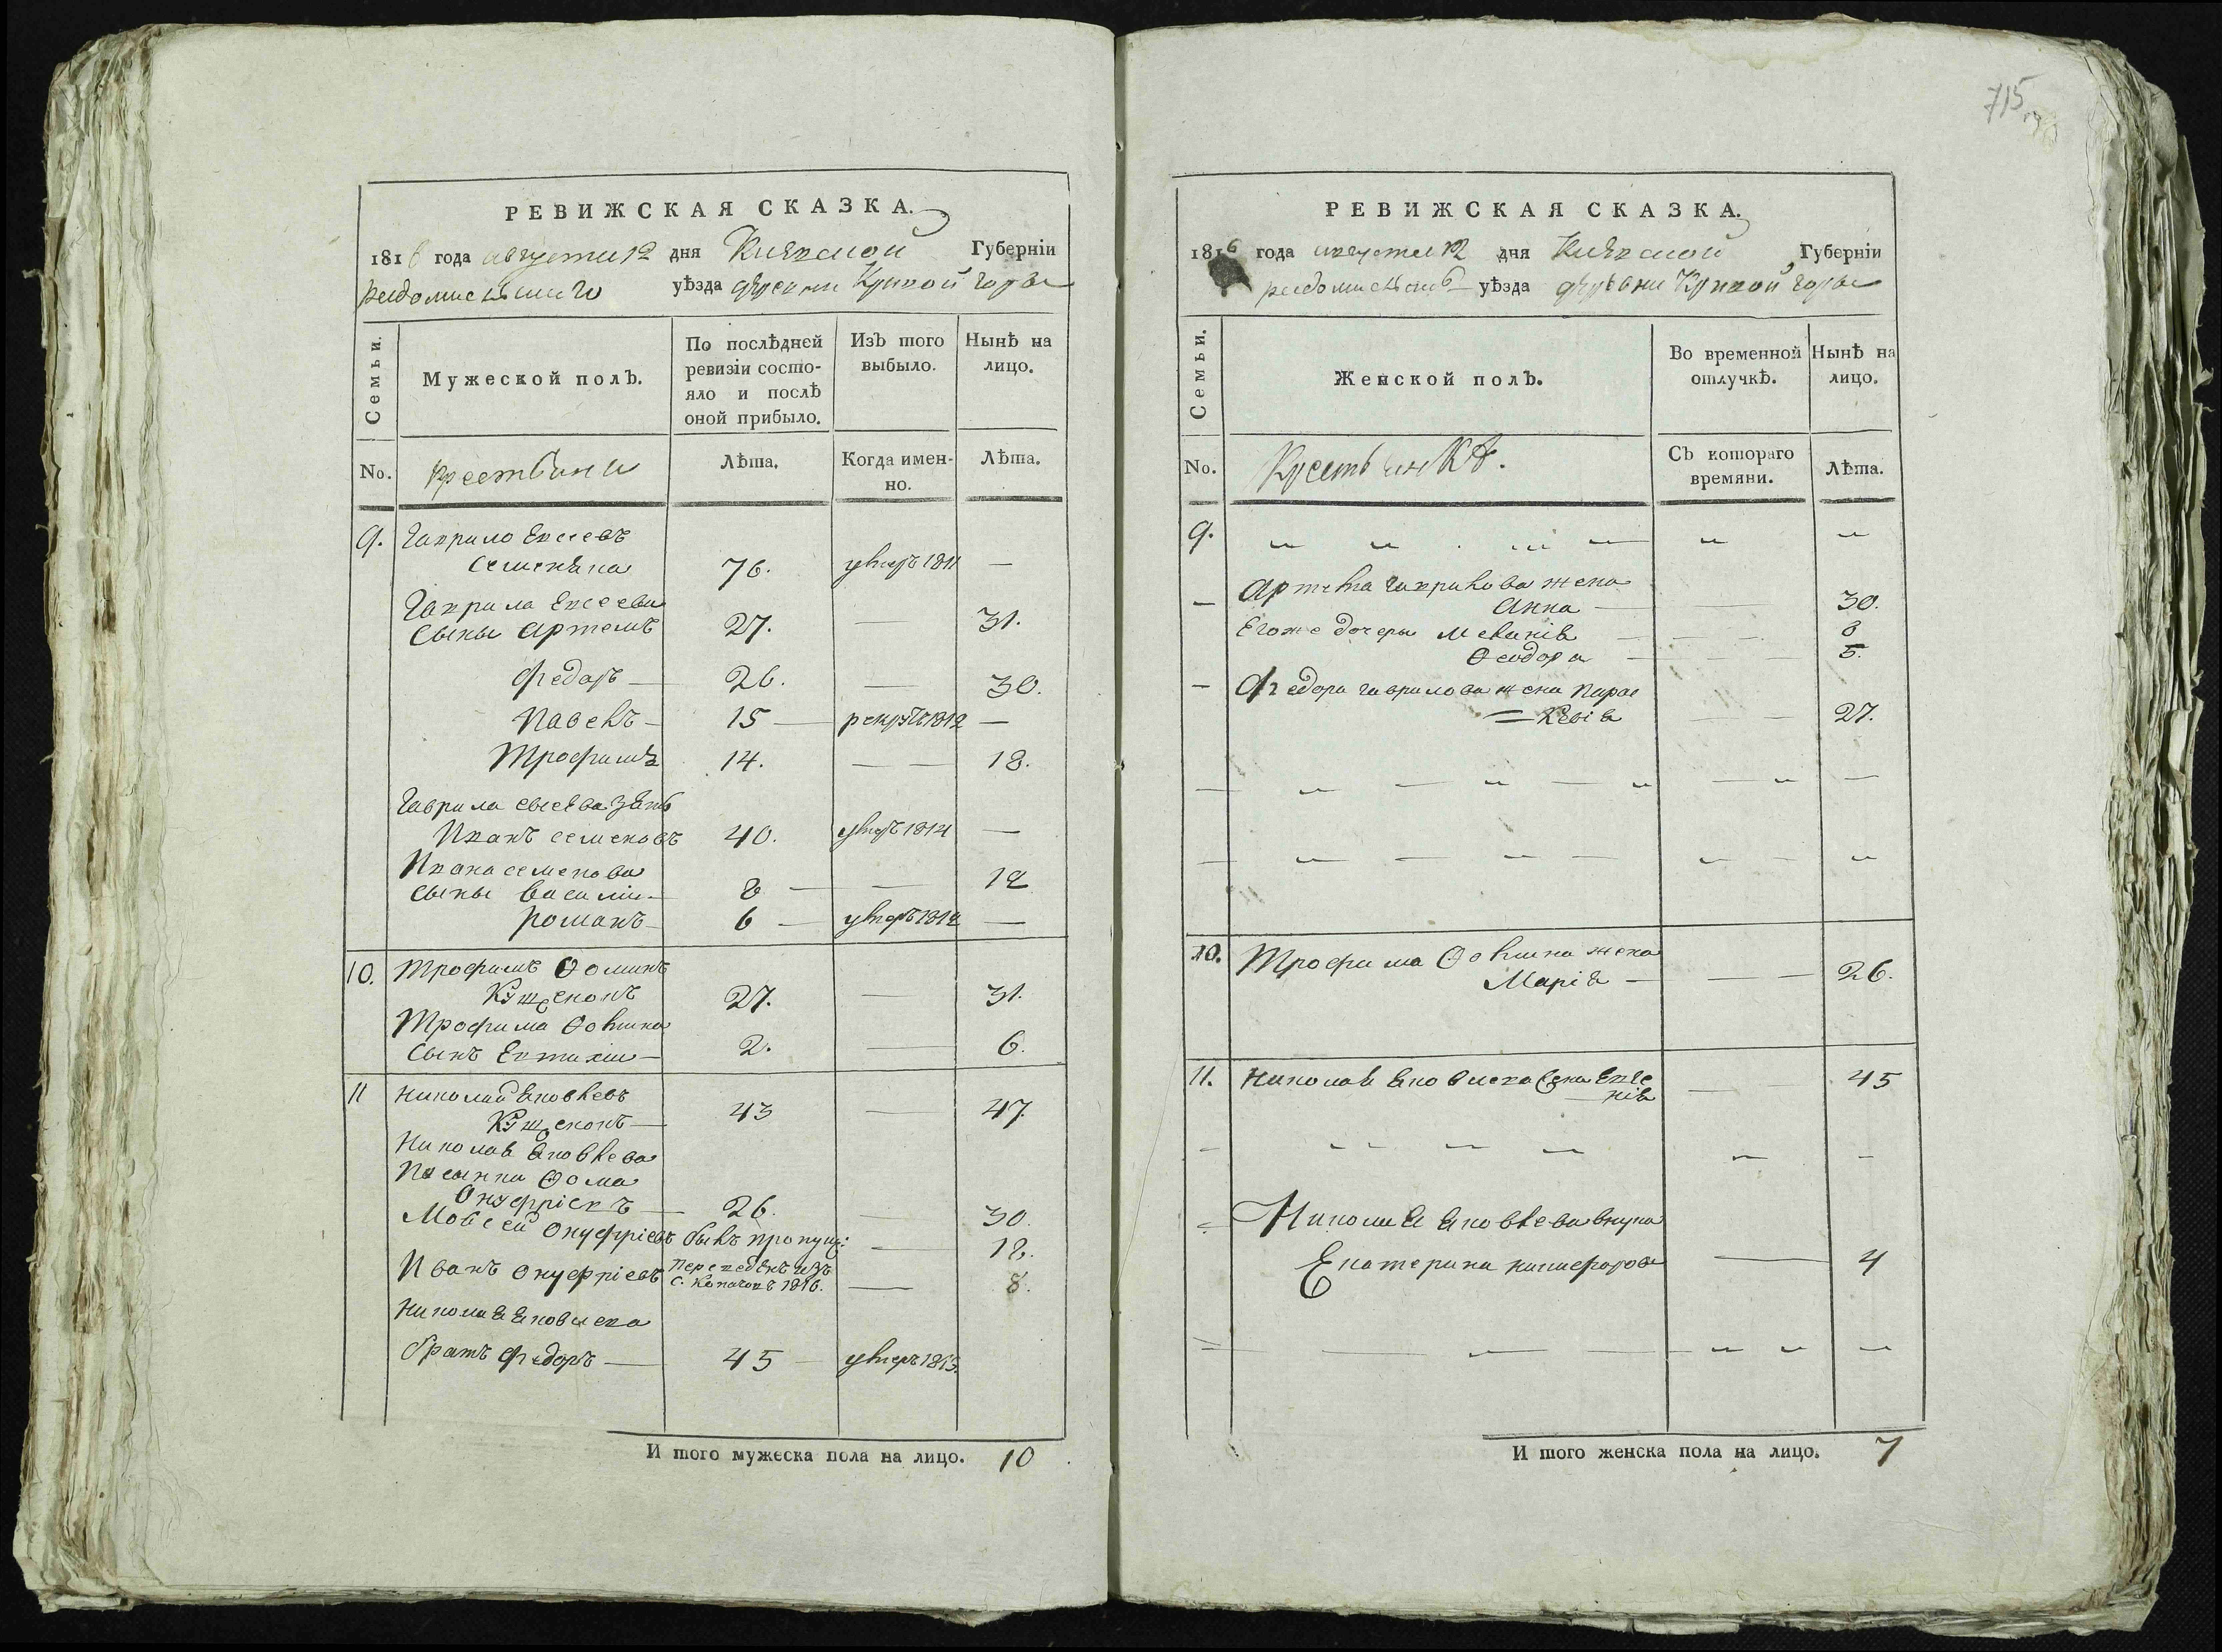 РЕВИЖСКАЯ СКАЗКА.
1816 года августа 12 дня Киевской Губерніи
Радомисльскаго уѣзда деревни Крикой горы
Семьи.
Мужеской полъ.
По послѣдней ревизіи состояло и послѣ оной прибыло.
Изъ того выбыло.
Нынѣ на лицо.
No.
Крестьяни
Лѣта.
Когда именно.
Лѣта.
9. Гаврило Евсеевъ
76. умеръ 1811 —
Гаврила Евсеева
сыны Артемъ 27. — 31.
Федоръ — 26. — 30.
Павелъ — 15 — рекрутъ 1812 —
Трофимъ 14. — — 18.
Гаврила Евсеева зять
Иванъ Семеновъ 40. умеръ 1814 —
Ивана Семенова
сыны Василій — 8 — — 12
Романъ — 6 — умеръ 1812 —
10. Трофимъ Ѳоминъ
27. — 31.
Трофима Ѳомина
сынъ Евтихій — 2. — 6.
11 Николай Яковлевъ
43 — 47.
Николая Яковлева
Пасынки Ѳома
Онуфріевъ — 26. — 30.
Мовсей Онуфріевъ былъ пропущ: — 18.
Иванъ Онуфріевъ переведенъ изъ
с. 1816. — 8.
Николая Яковлева
братъ Федоръ — 45 — умеръ 1813.
И того мужеска пола на лицо. 10
715
РЕВИЖСКАЯ СКАЗКА.
1816 года августа 12 дня Киевской Губерніи
Радомисльскаго уѣзда деревни Крикой горы
Семьи.
Женской полъ.
Во временной отлучкѣ.
Нынѣ на лицо.
No.
Крестьянкѣ.
Съ котораго времяни.
Лѣта.
9.
— Артема Гаврилова жена
Анна — — 30.
Егоже дочеры Меланія — — 8
Ѳеодора — — — 5.
— Федора Гаврилова жена Парас
= кевія — — 27.
10. Трофима Ѳомина жена
Марія — — — 26.
11. Николая Яковлева жена Евге
— нія — 45
Николая Яковлева внука
Екатерина Никифорова — 4
И того женска пола на лицо. 7